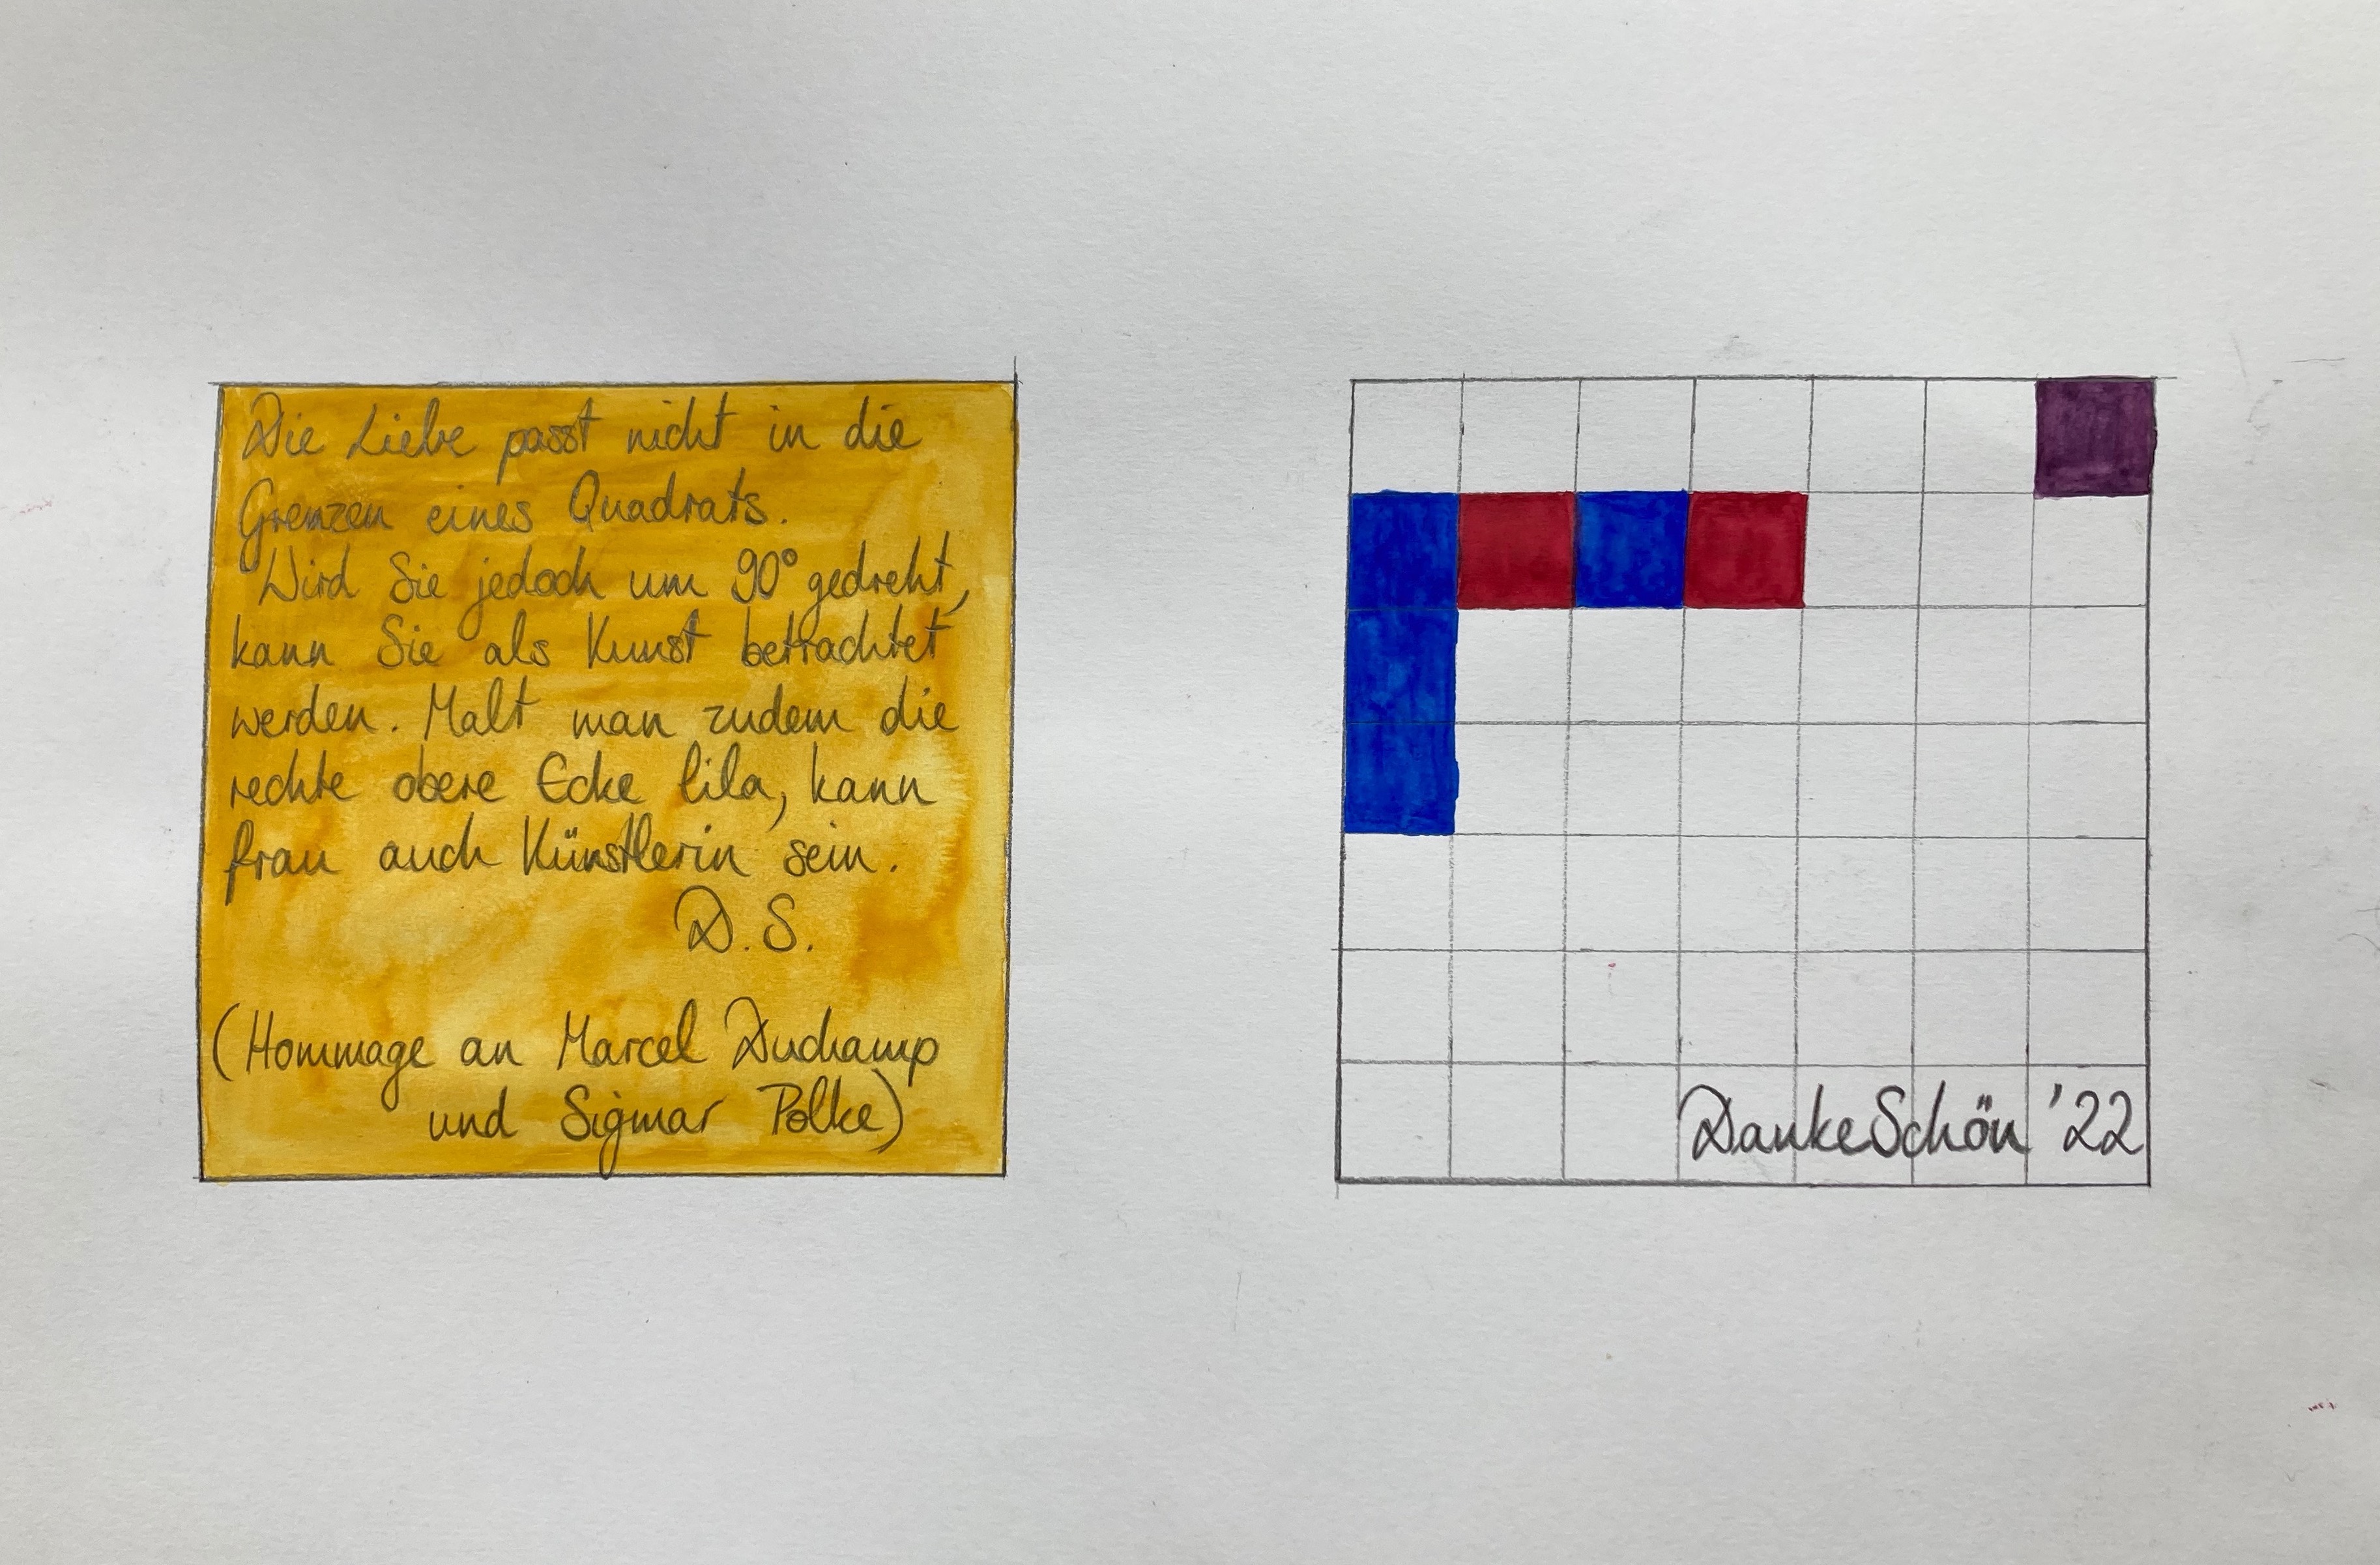 Die Liebe passt nicht in die
Grenzen eines Quadrats.
Wird Sie jedoch um 90° gedreht,
kann Sie als Kunst betrachtet
werden. Malt man zudem die
rechte obere Ecke lila, kann
frau auch Künstlerin sein.
D.S.
(Hommage an Marcel Duchamp
und Sigmar Polke)
DankeSchön '22